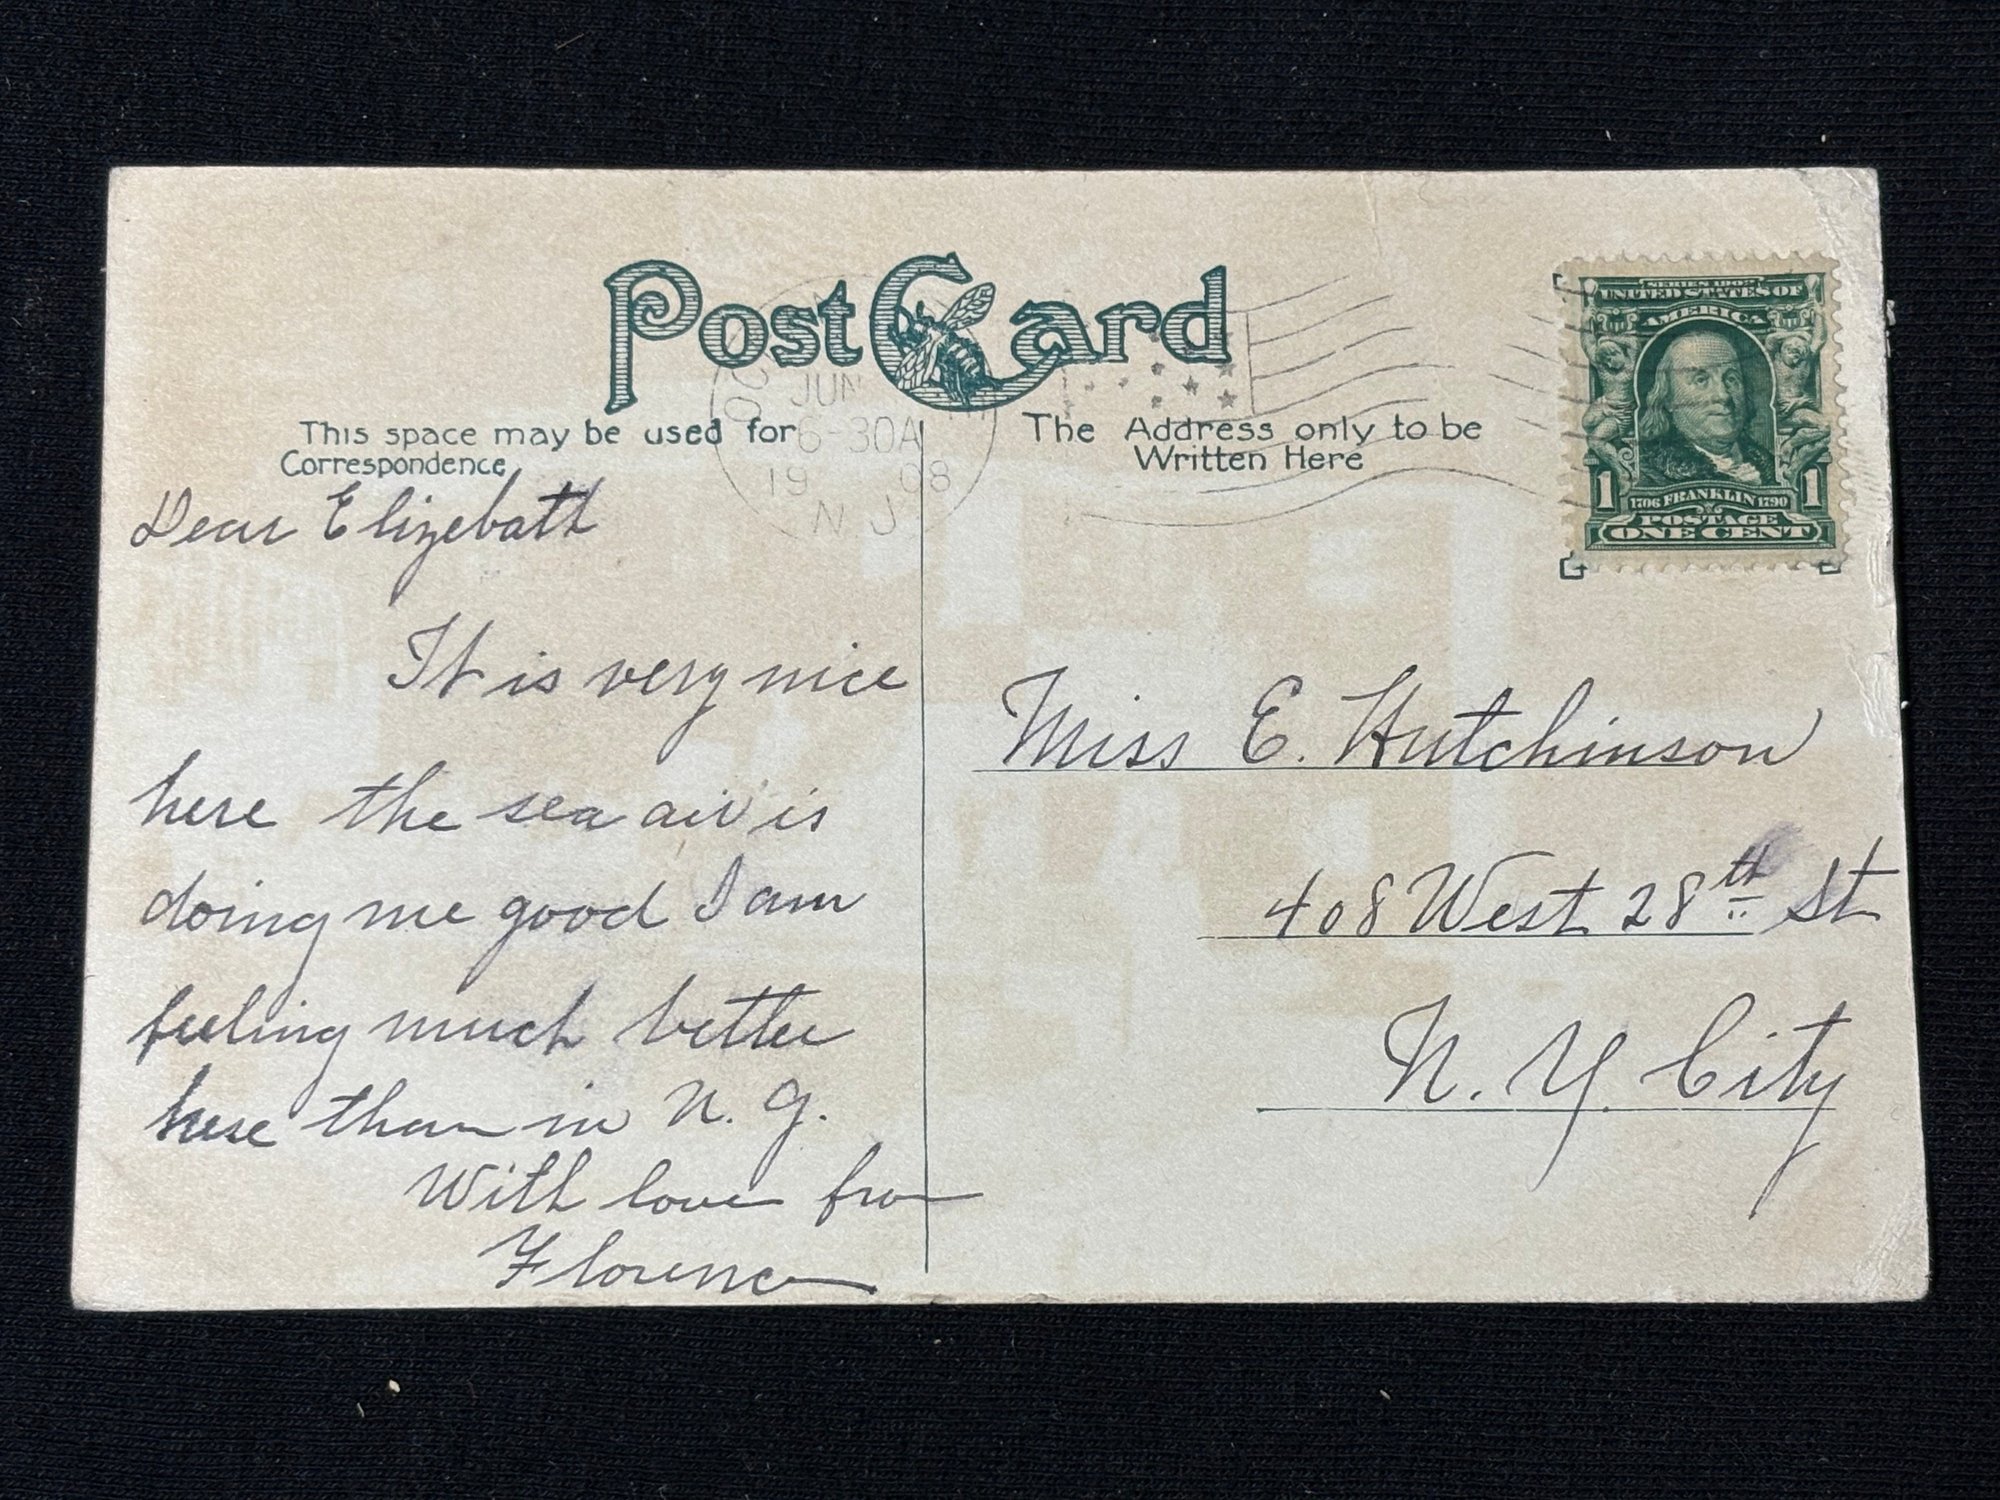 Post Card
This space may be used for
Correspondence
The Address only to be
Written Here
JUN
6-30A
19 08
N J
SERIES 1902
UNITED STATES OF
AMERICA
1 1
1706 FRANKLIN 1790
POSTAGE
ONE CENT
Dear Elizebath
It is very nice
here the sea air is
doing me good I am
feeling much better
here than in N. Y.
With love from
Florence
Miss E. Hutchinson
408 West 28th St
N. Y. City